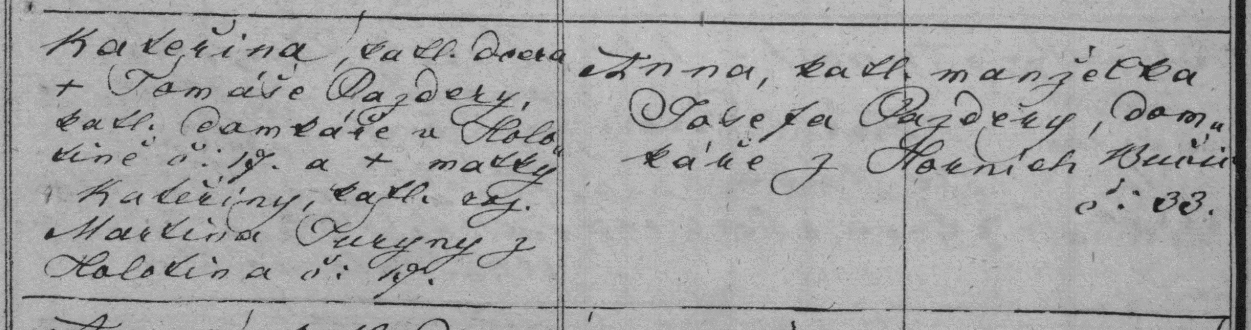 Kateřina, katl. dcera
+ Tomáše Pazdery,
katl. domkáře v Holo„
tině č: 19. a + matky
Kateřiny, katl. roz.
Martina Turyny z
Holotina č: 19.
Anna, katl. manželka
Josefa Pazdery, dom„
káře z Horních
č: 33.